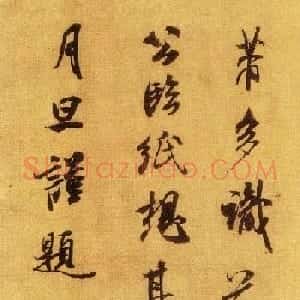 芾多識
公臨紙想其
月旦謹題
Shufazidao.com